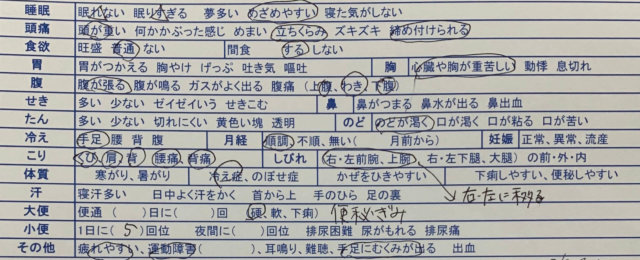 睡眠 眠れない 眠りすぎる 夢多い めざめやすい 寝た気がしない
頭痛 頭が重い 何かかぶった感じ めまい 立ちくらみ ズキズキ 締め付けられる
食欲 旺盛 普通 ない 間食 する しない
胃 胃がつかえる 胸やけ げっぷ 吐き気 嘔吐 胸 心臓や胸が重苦しい 動悸 息切れ
腹 腹が張る 腹が鳴る ガスがよく出る 腹痛 (上腹、わき、下腹)
せき 多い 少ない ゼイゼイいう せきこむ 鼻 鼻がつまる 鼻水が出る 鼻出血
たん 多い 少ない 切れにくい 黄色い塊 透明 のど のどが渇く 口が渇く 口が粘る 口が苦い
冷え 手足 腰 背 腹 月経 順調、不順、無い( 月前から) 妊娠 正常、異常、流産
こり くび 肩 背 腰痛 背痛 しびれ 右・左前腕、上腕、右・左下腿、大腿) の前・外・内
体質 寒がり、暑がり 冷え症、のぼせ症 かぜをひきやすい 下痢しやすい、便秘しやすい
汗 寝汗多い 日中よく汗をかく 首から上 手のひら 足の裏 右・左に移る
大便 便通 ( )日に( )回 (硬、軟、下痢) 便秘ぎみ
小便 1日に( 5 )回位 夜間に( )回位 排尿困難 尿がもれる 排尿痛
その他 疲れやすい、運動障害( )、耳鳴り、難聴、手足にむくみが出る 出血